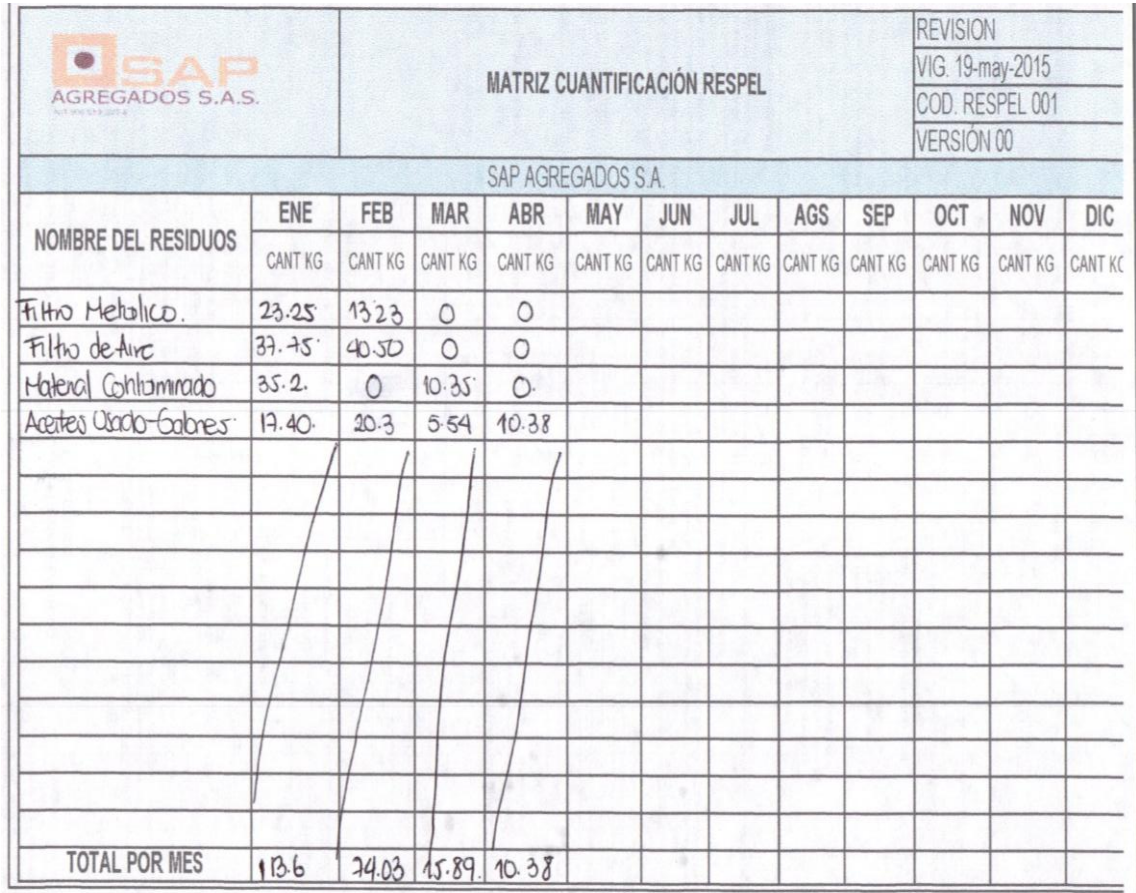 SAP
AGREGADOS S.A.S.
MATRIZ CUANTIFICACIÓN RESPEL
REVISION
VIG. 19-may-2015
COD. RESPEL 001
VERSIÓN 00
SAP AGREGADOS S.A.
NOMBRE DEL RESIDUOS ENE FEB MAR ABR MAY JUN JUL AGS SEP OCT NOV DIC
CANT KG CANT KG CANT KG CANT KG CANT KG CANT KG CANT KG CANT KG CANT KG CANT KG CANT KG CANT KG
Filtro Metalico. 23.25 13.23 0 0
Filtro de Aire 37.75 40.50 0 0
Material Contaminado 35.2. 0 10.35 0
Aceites Usado-Galones 17.40. 20.3 5.54 10.38
TOTAL POR MES 113.6 74.03 15.89. 10.38